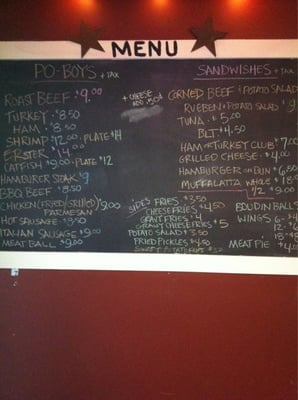 MENU
PO-BOYS + TAX
ROAST BEEF $9.00
TURKEY $8.50
HAM $8.50
SHRIMP $12.00 - PLATE $14
$14
CATFISH $9.00 - PLATE $12
HAMBURGER STEAK $9
BBQ BEEF $8.50
CHICKEN (FRIED/GRILLED) $9.00
PARMESAN
HOT SAUSAGE
ITALIAN SAUSAGE $9.00
MEAT BALL $9.00
+ CHEESE
ADD .50¢
SIDES FRIES $3.50
CHEESE FRIES $4.50
GRAVY FRIES $4
GRAVY CHEESE FRIES $5
POTATO SALAD $3.50
FRIED PICKLES $4.50
SANDWISHES + TAX
CORNED BEEF & POTATO SALAD
RUEBEN & POTATO SALAD $9
TUNA $5.00
BLT $4.50
HAM OR TURKEY CLUB $7.0
GRILLED CHEESE $4.00
HAMBURGER ON BUN $6.50
MUFFALATTA WHOLE $18
1/2 $9.00
BOUDIN BALLS
WINGS 6-
12-
18-
MEAT PIE